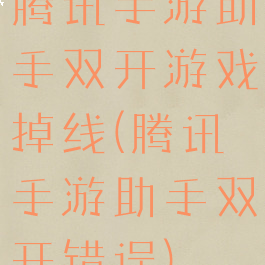 腾讯手游助
手双开游戏
掉线(腾讯
手游助手双
开错误)